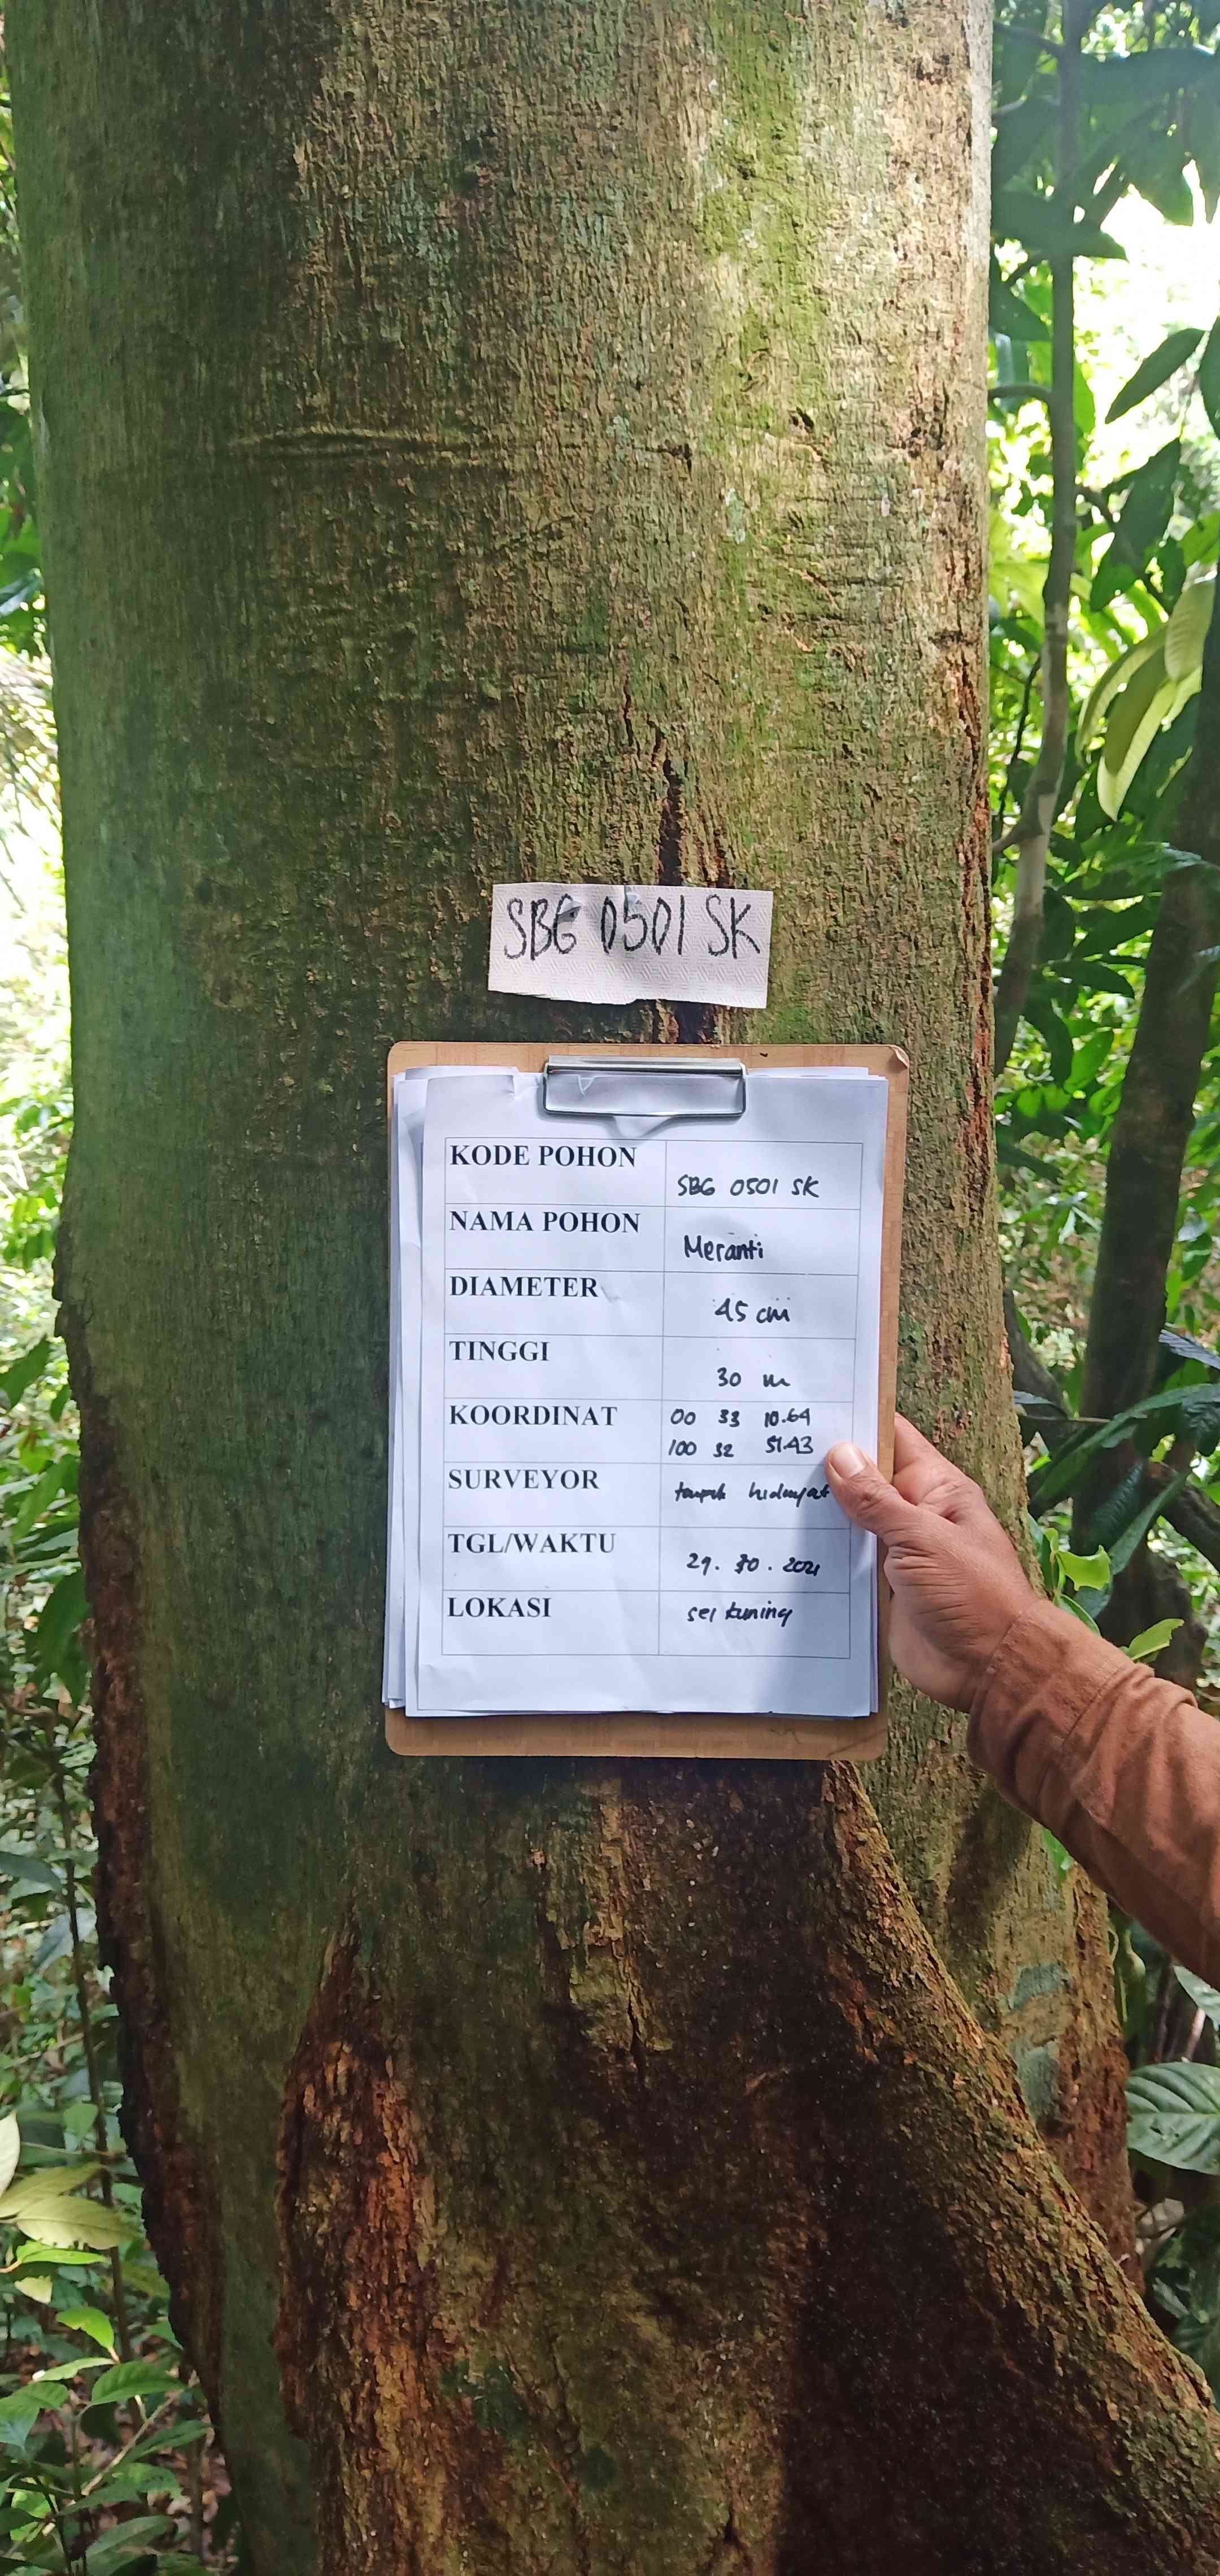 SBG 0501 SK
KODE POHON SBG 0501 SK
NAMA POHON Meranti
DIAMETER 45 cm
TINGGI 30 m
KOORDINAT 00 33 10.64
100 32 51.43
SURVEYOR hidayat
TGL/WAKTU 29. 10. 2021
LOKASI sei kuning